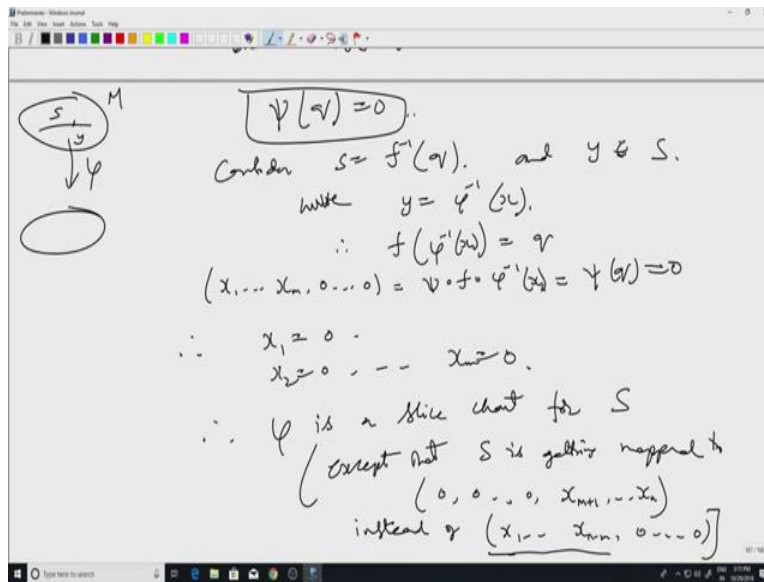 Preliminaries - Windows Journal
File Edit View Insert Actions Tools Help
M
S
y
φ
ψ(q) = 0.
Consider S = f⁻¹(q). and y ∈ S.
write y = φ⁻¹(x).
∴ f(φ⁻¹(x)) = q
(x₁ ... xₘ, 0 ... 0) = ψ∘f∘φ⁻¹(x) = ψ(q) = 0
∴ x₁ = 0 .
x₂ = 0 , - - xₘ = 0.
∴ φ is a slice chart for S
(except that S is getting mapped to
(0, 0 .., 0, xₘ₊₁, .. xₙ)
instead of (x₁ ... xₙ₋ₘ, 0 ... 0)]
Type here to search
ENG 3:15 PM